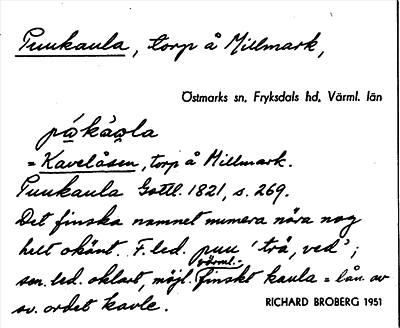 Puukaula, torp å Millmark,
Östmarks sn, Fryksdals hd, Värml. län
på̱kȧa̱la
= Kavelåsen, torp å Millmark.
Puukaula Gottl. 1821, s. 269.
Det finska namnet numera nära nog
helt okänt. F. led. puu 'trä, ved';
sen. led. oklart, möjl. värml.-finskt kaula = lån. av
sv. ordet kavle.
RICHARD BROBERG 1951